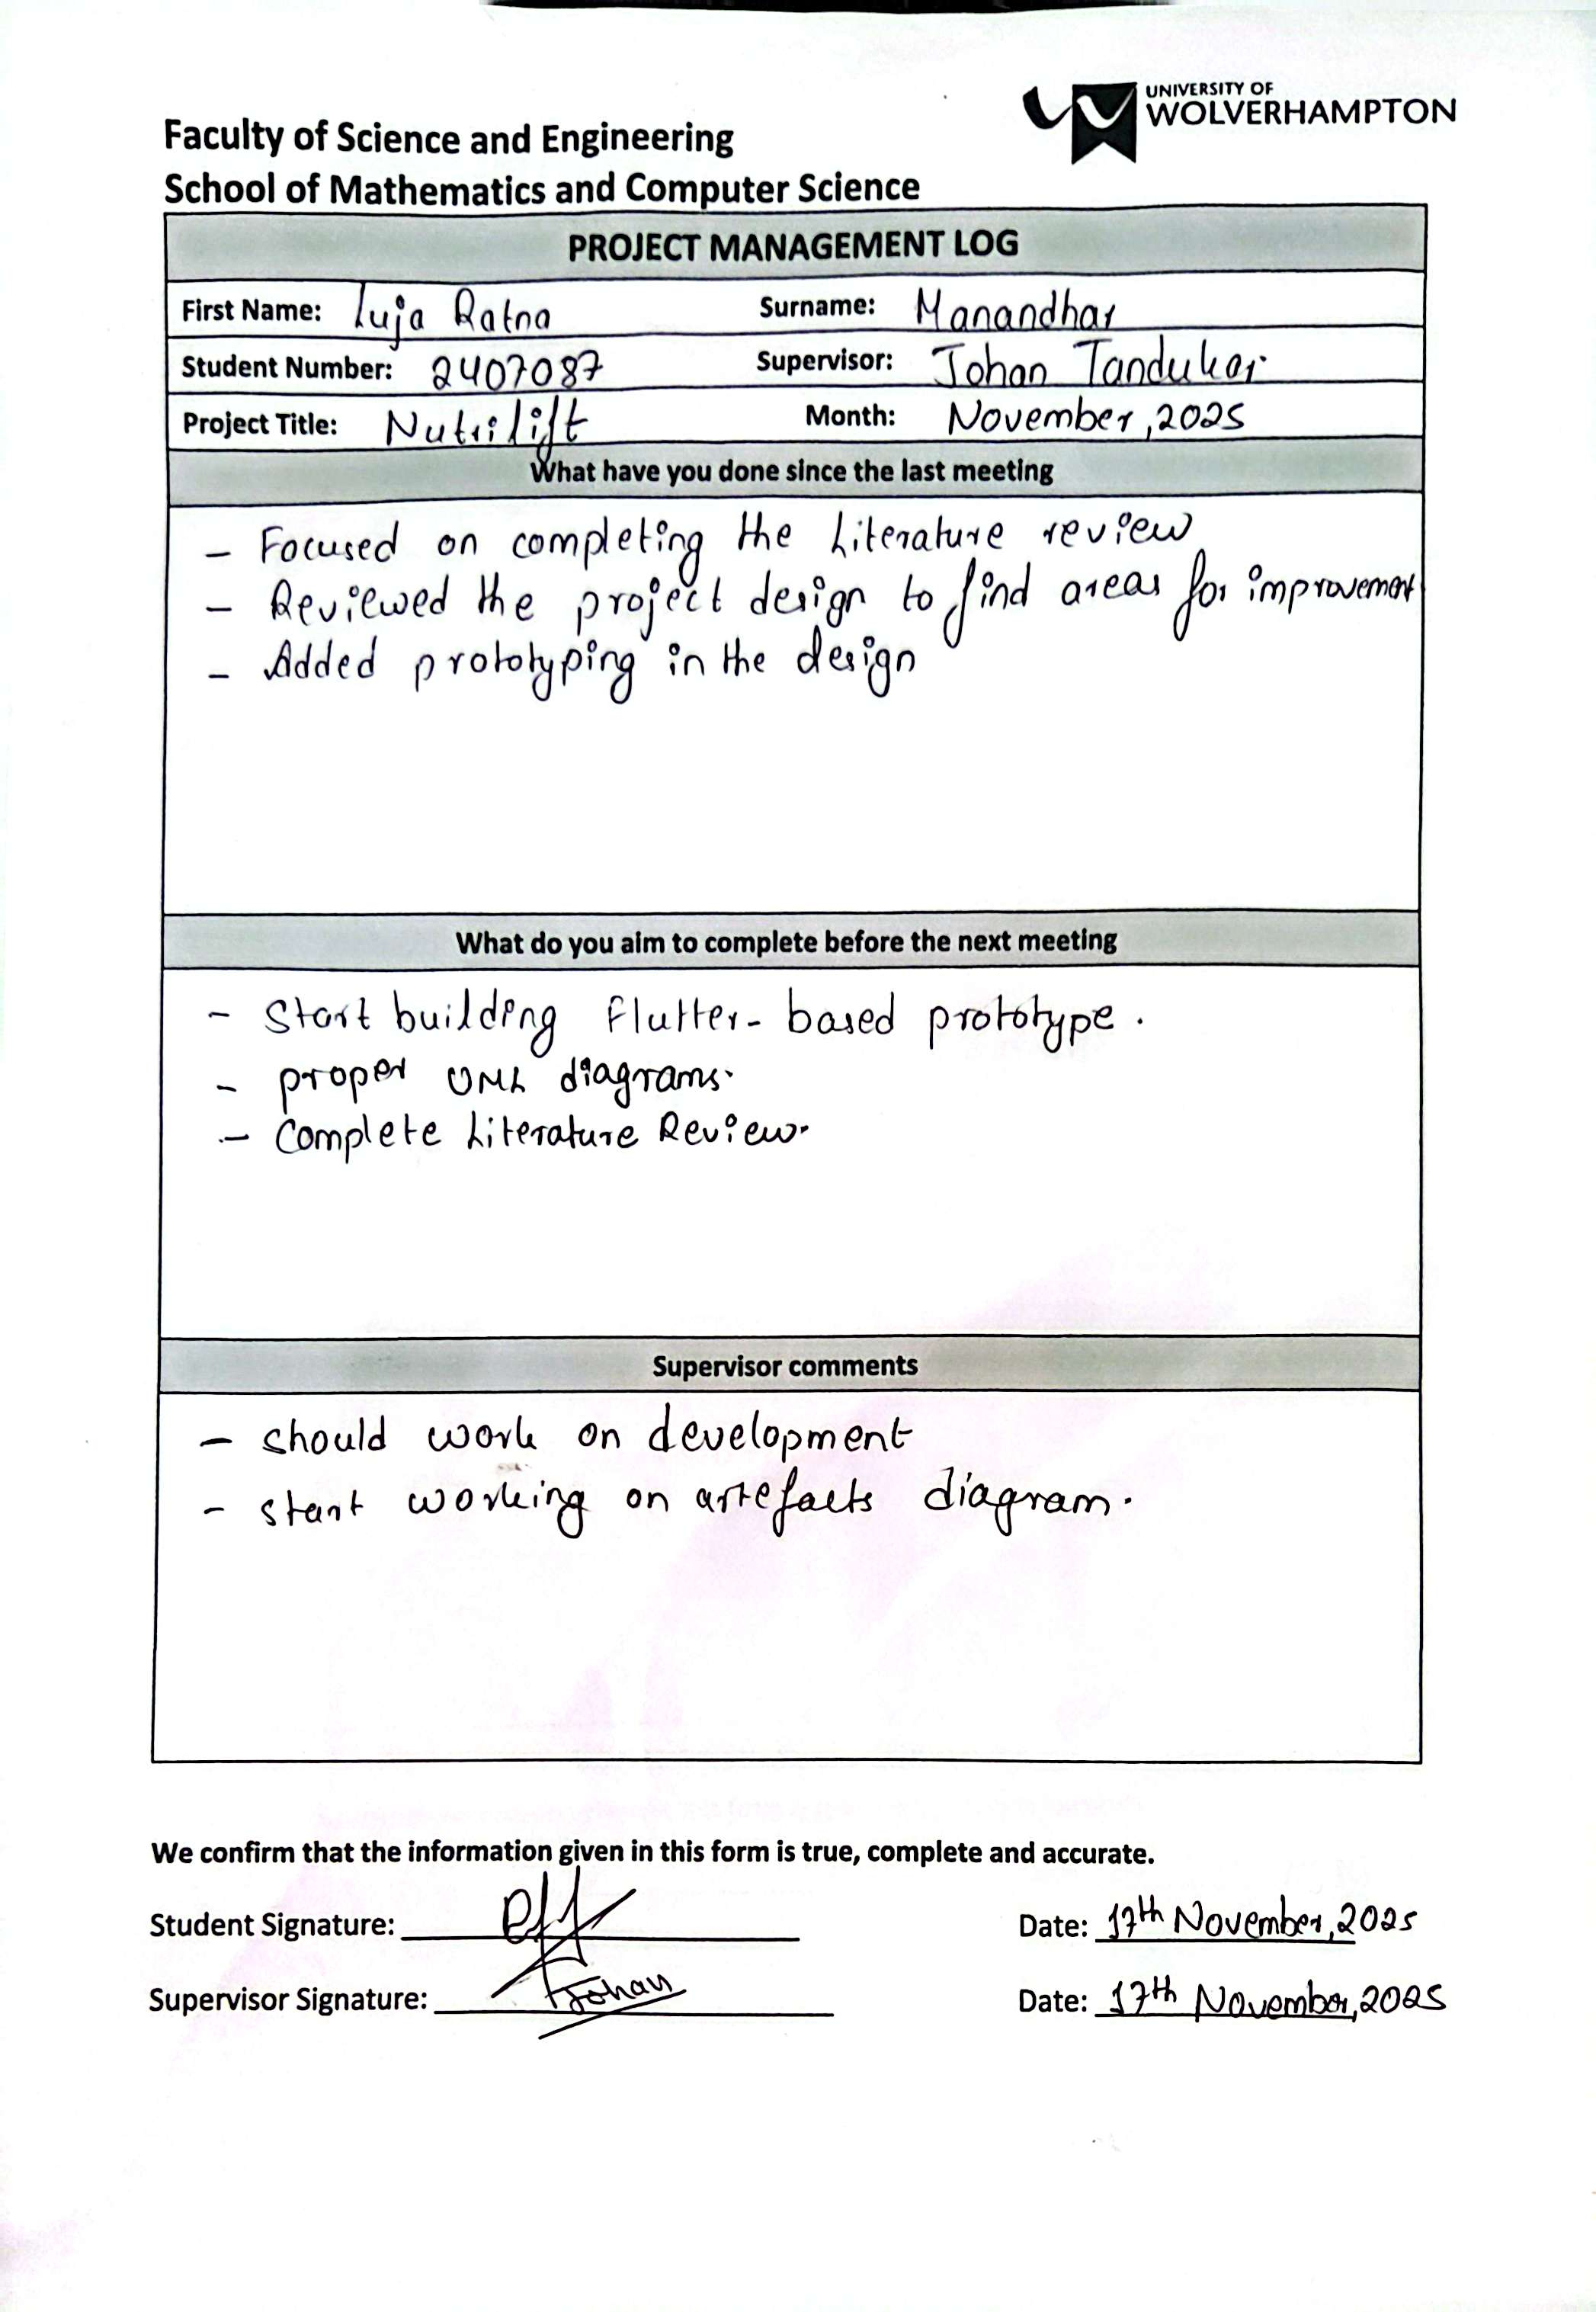 UNIVERSITY OF
WOLVERHAMPTON
Faculty of Science and Engineering
School of Mathematics and Computer Science
PROJECT MANAGEMENT LOG
First Name: Luja Ratna Surname: Manandhar
Student Number: 2407087 Supervisor: Johan Tandukar
Project Title: Nutrilift Month: November, 2025
What have you done since the last meeting
- Focused on completing the Literature review
- Reviewed the project design to find areas for improvement
- Added prototyping in the design
What do you aim to complete before the next meeting
- Start building Flutter-based prototype.
- proper UML diagrams.
- Complete Literature Review.
Supervisor comments
- should work on development
- start working on artefacts diagram.
We confirm that the information given in this form is true, complete and accurate.
Student Signature: Date: 17th November, 2025
Supervisor Signature: Johan Date: 17th November, 2025